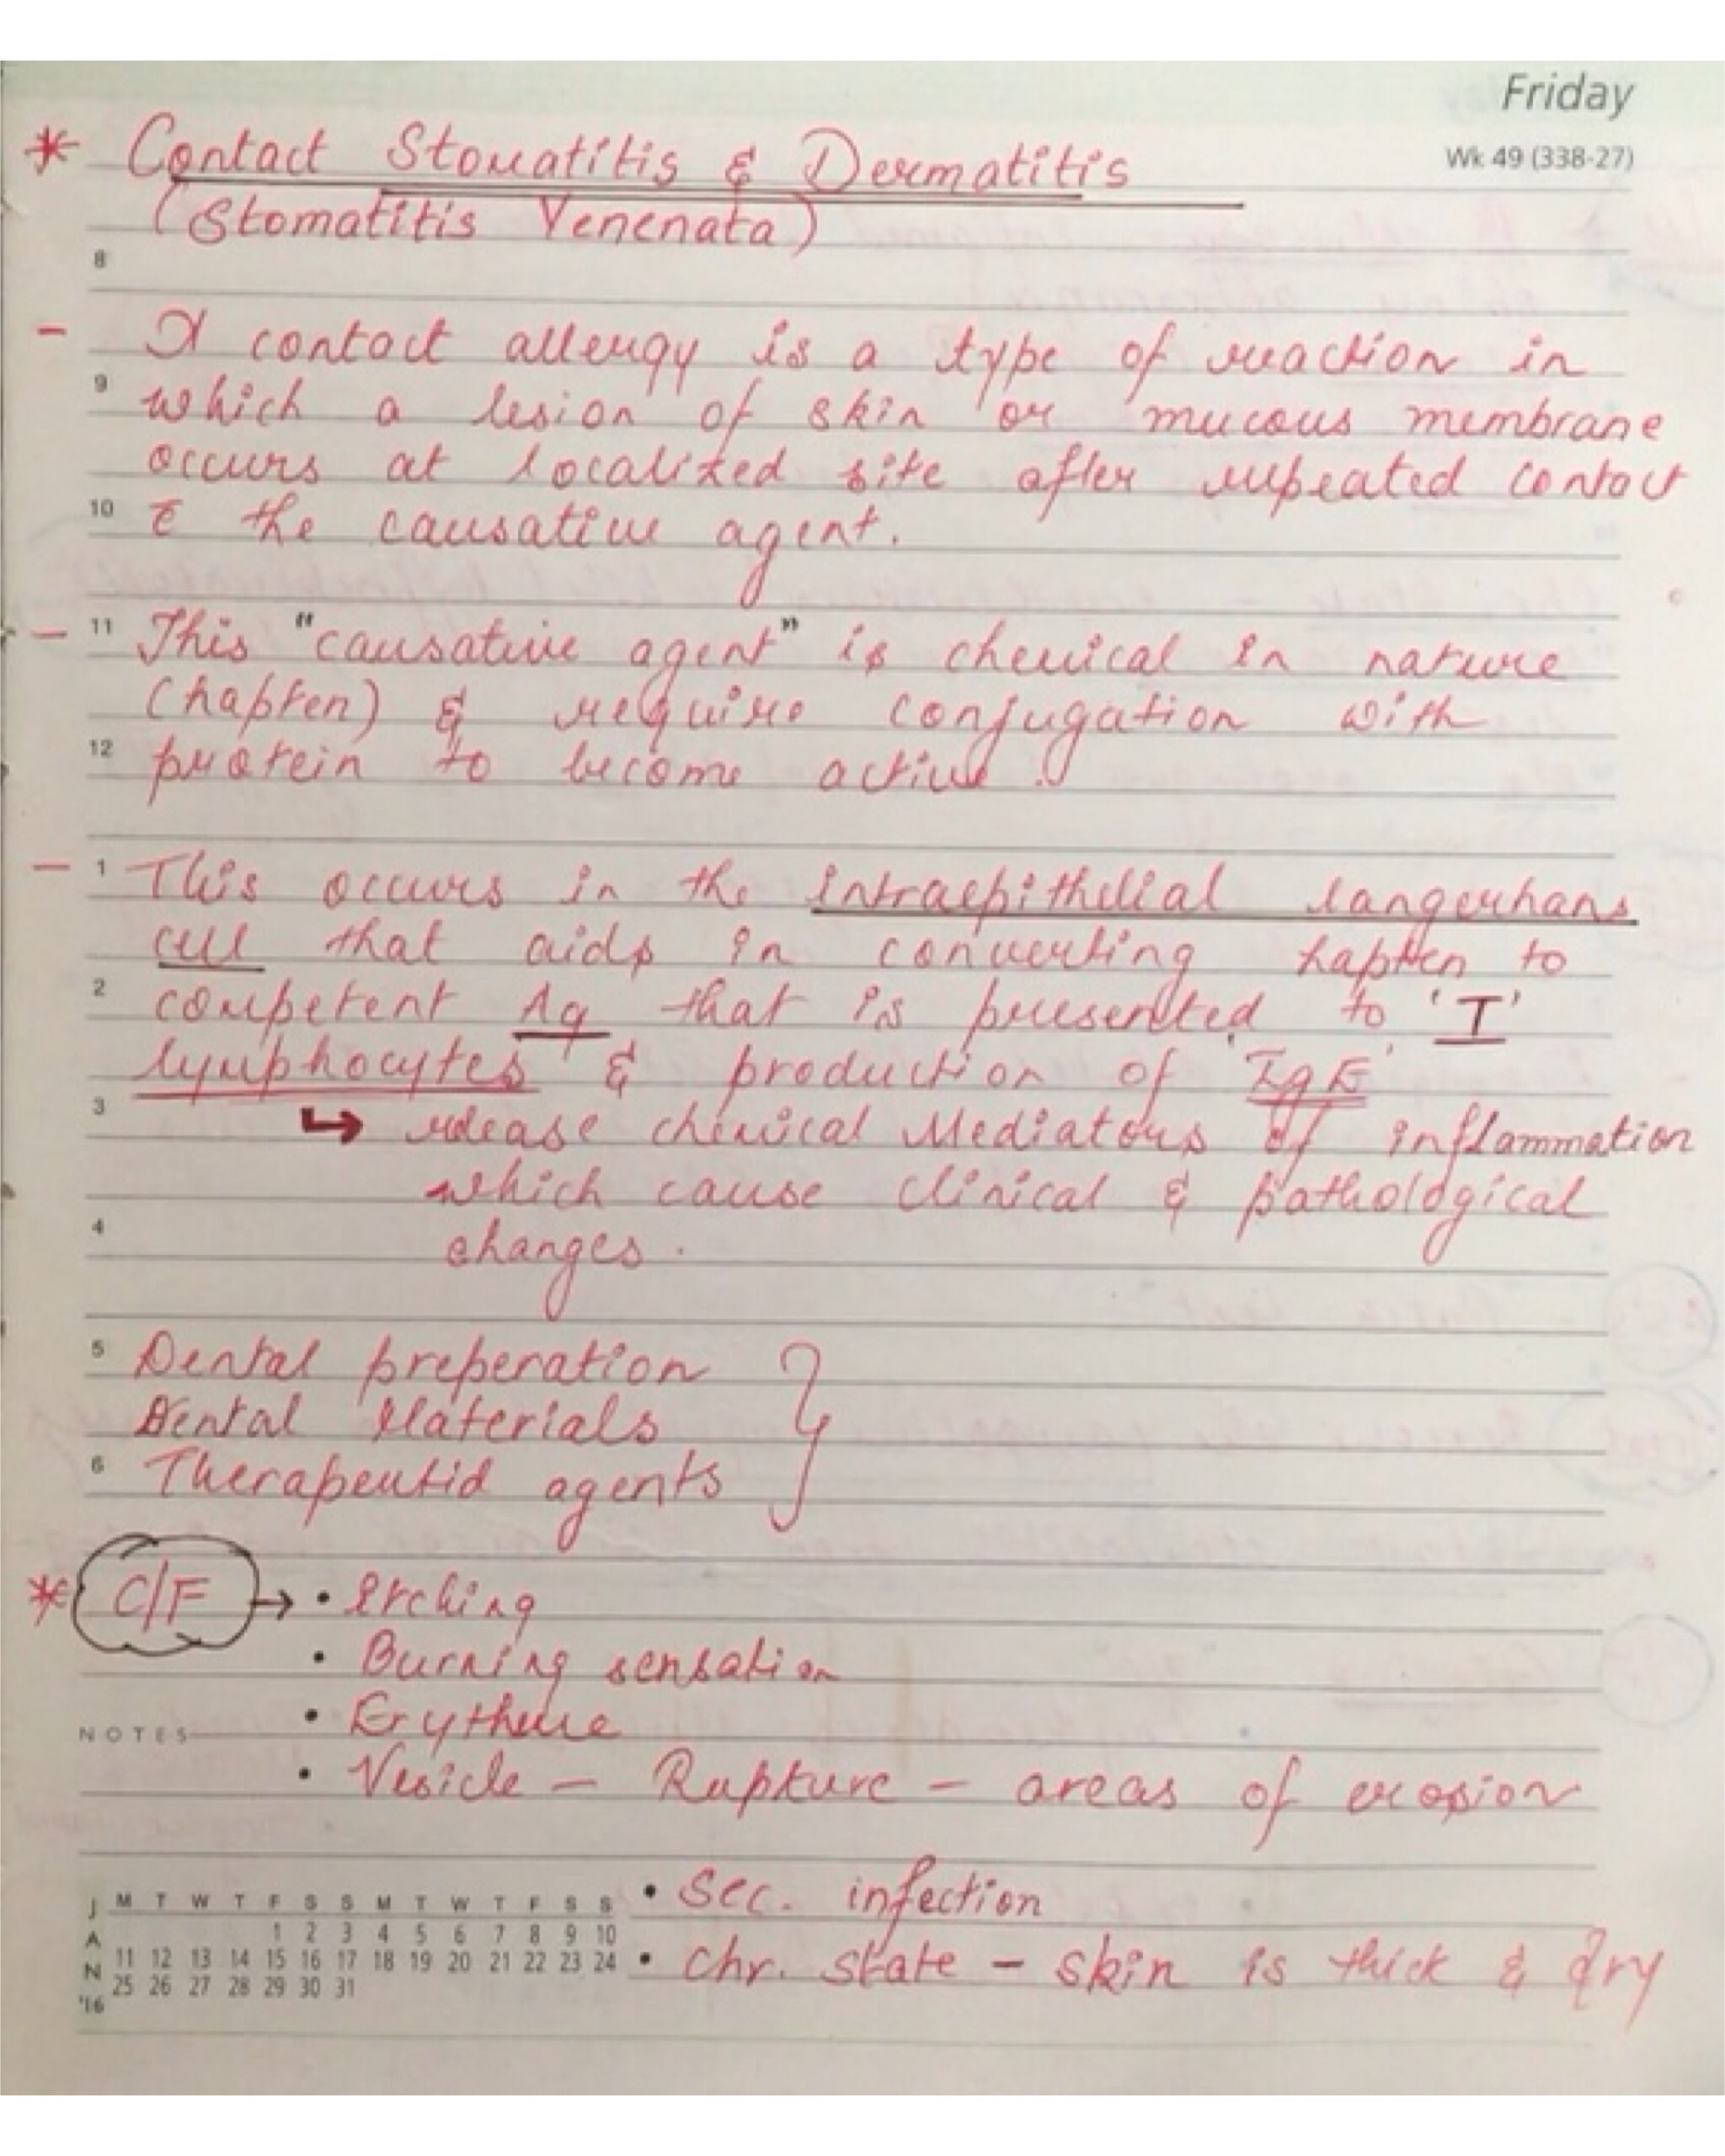 Friday
Wk 49 (338-27)
* Contact Stomatitis & Dermatitis
(Stomatitis Venenata)
8
- A contact allergy is a type of reaction in
9 which a lesion of skin or mucous membrane
occurs at localized site after repeated contact
10 c̄ the causative agent.
- 11 This "causative agent" is chemical in nature
(hapten) & require conjugation with
12 protein to become active.
- 1 This occurs in the intraepithelial langerhans
cell that aids in converting hapten to
2 competent Ag that is presented to 'T'
lymphocytes & production of 'IgE'
3 ↳ release chemical Mediators of inflammation
which cause clinical & pathological
4 changes.
5 Dental preperation }
Dental Materials
6 Therapeutid agents
* C/F → • Itching
• Burning sensation
NOTES • Erytheme
• Vesicle - Rupture - areas of erosion
• Sec. infection
• Chr. state - skin is thick & dry
JAN '16
M T W T F S S M T W T F S S
1 2 3 4 5 6 7 8 9 10
11 12 13 14 15 16 17 18 19 20 21 22 23 24
25 26 27 28 29 30 31